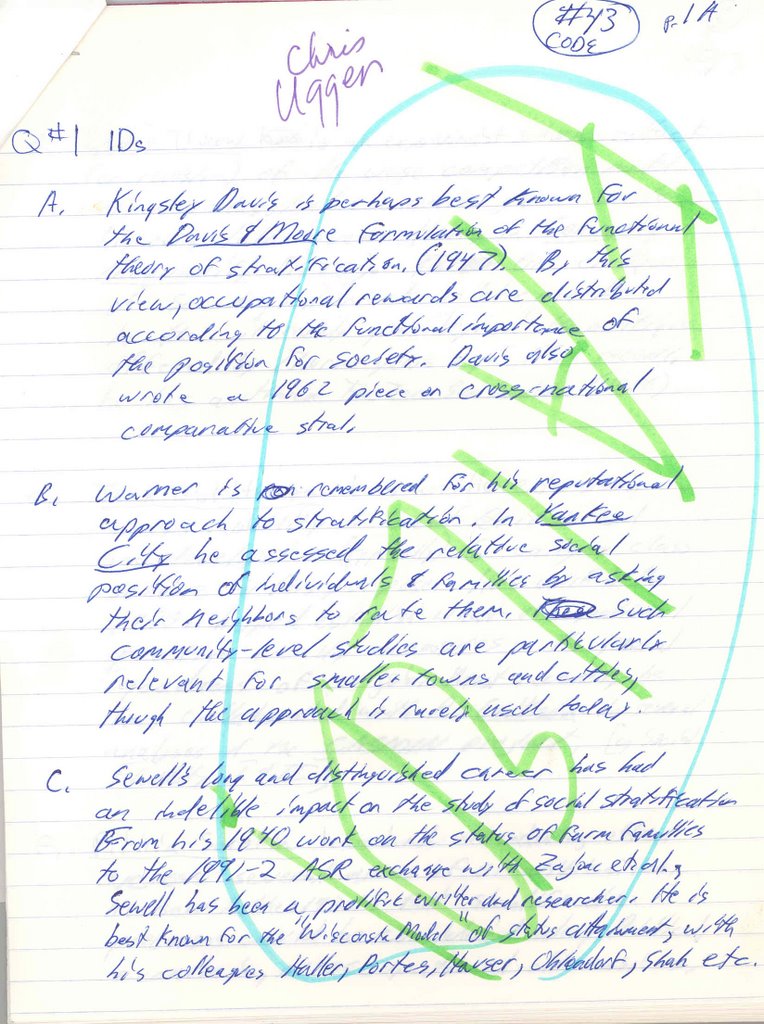 #43
CODE
Pg 1A
Chris
Uggen
Q#1 IDs
A. Kingsley Davis is perhaps best known for
the Davis & Moore formulation of the functional
theory of stratification. (1947). By this
view, occupational rewards are distributed
according to the functional importance of
the position for society. Davis also
wrote a 1962 piece on cross-national
comparative strat.
B. Warner is remembered for his reputational
approach to stratification. In Yankee
City he assessed the relative social
position of individuals & families by asking
their neighbors to rate them. Such
community-level studies are particularly
relevant for smaller towns and cities,
though the approach is rarely used today.
C. Sewell's long and distinguished career has had
an indelible impact on the study of social stratification
From his 1940 work on the status of farm families
to the 1991-2 ASR exchange with Zajonc et al.,
Sewell has been a prolific writer and researcher. He is
best known for the "Wisconsin Model" of status attainment, with
his colleagues Haller, Portes, Hauser, Ohlendorf, Shah etc.